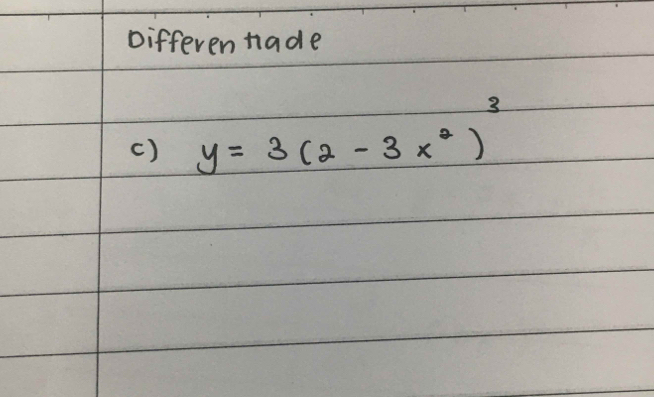 Differentiade
c) y = 3 (2 - 3x²)³